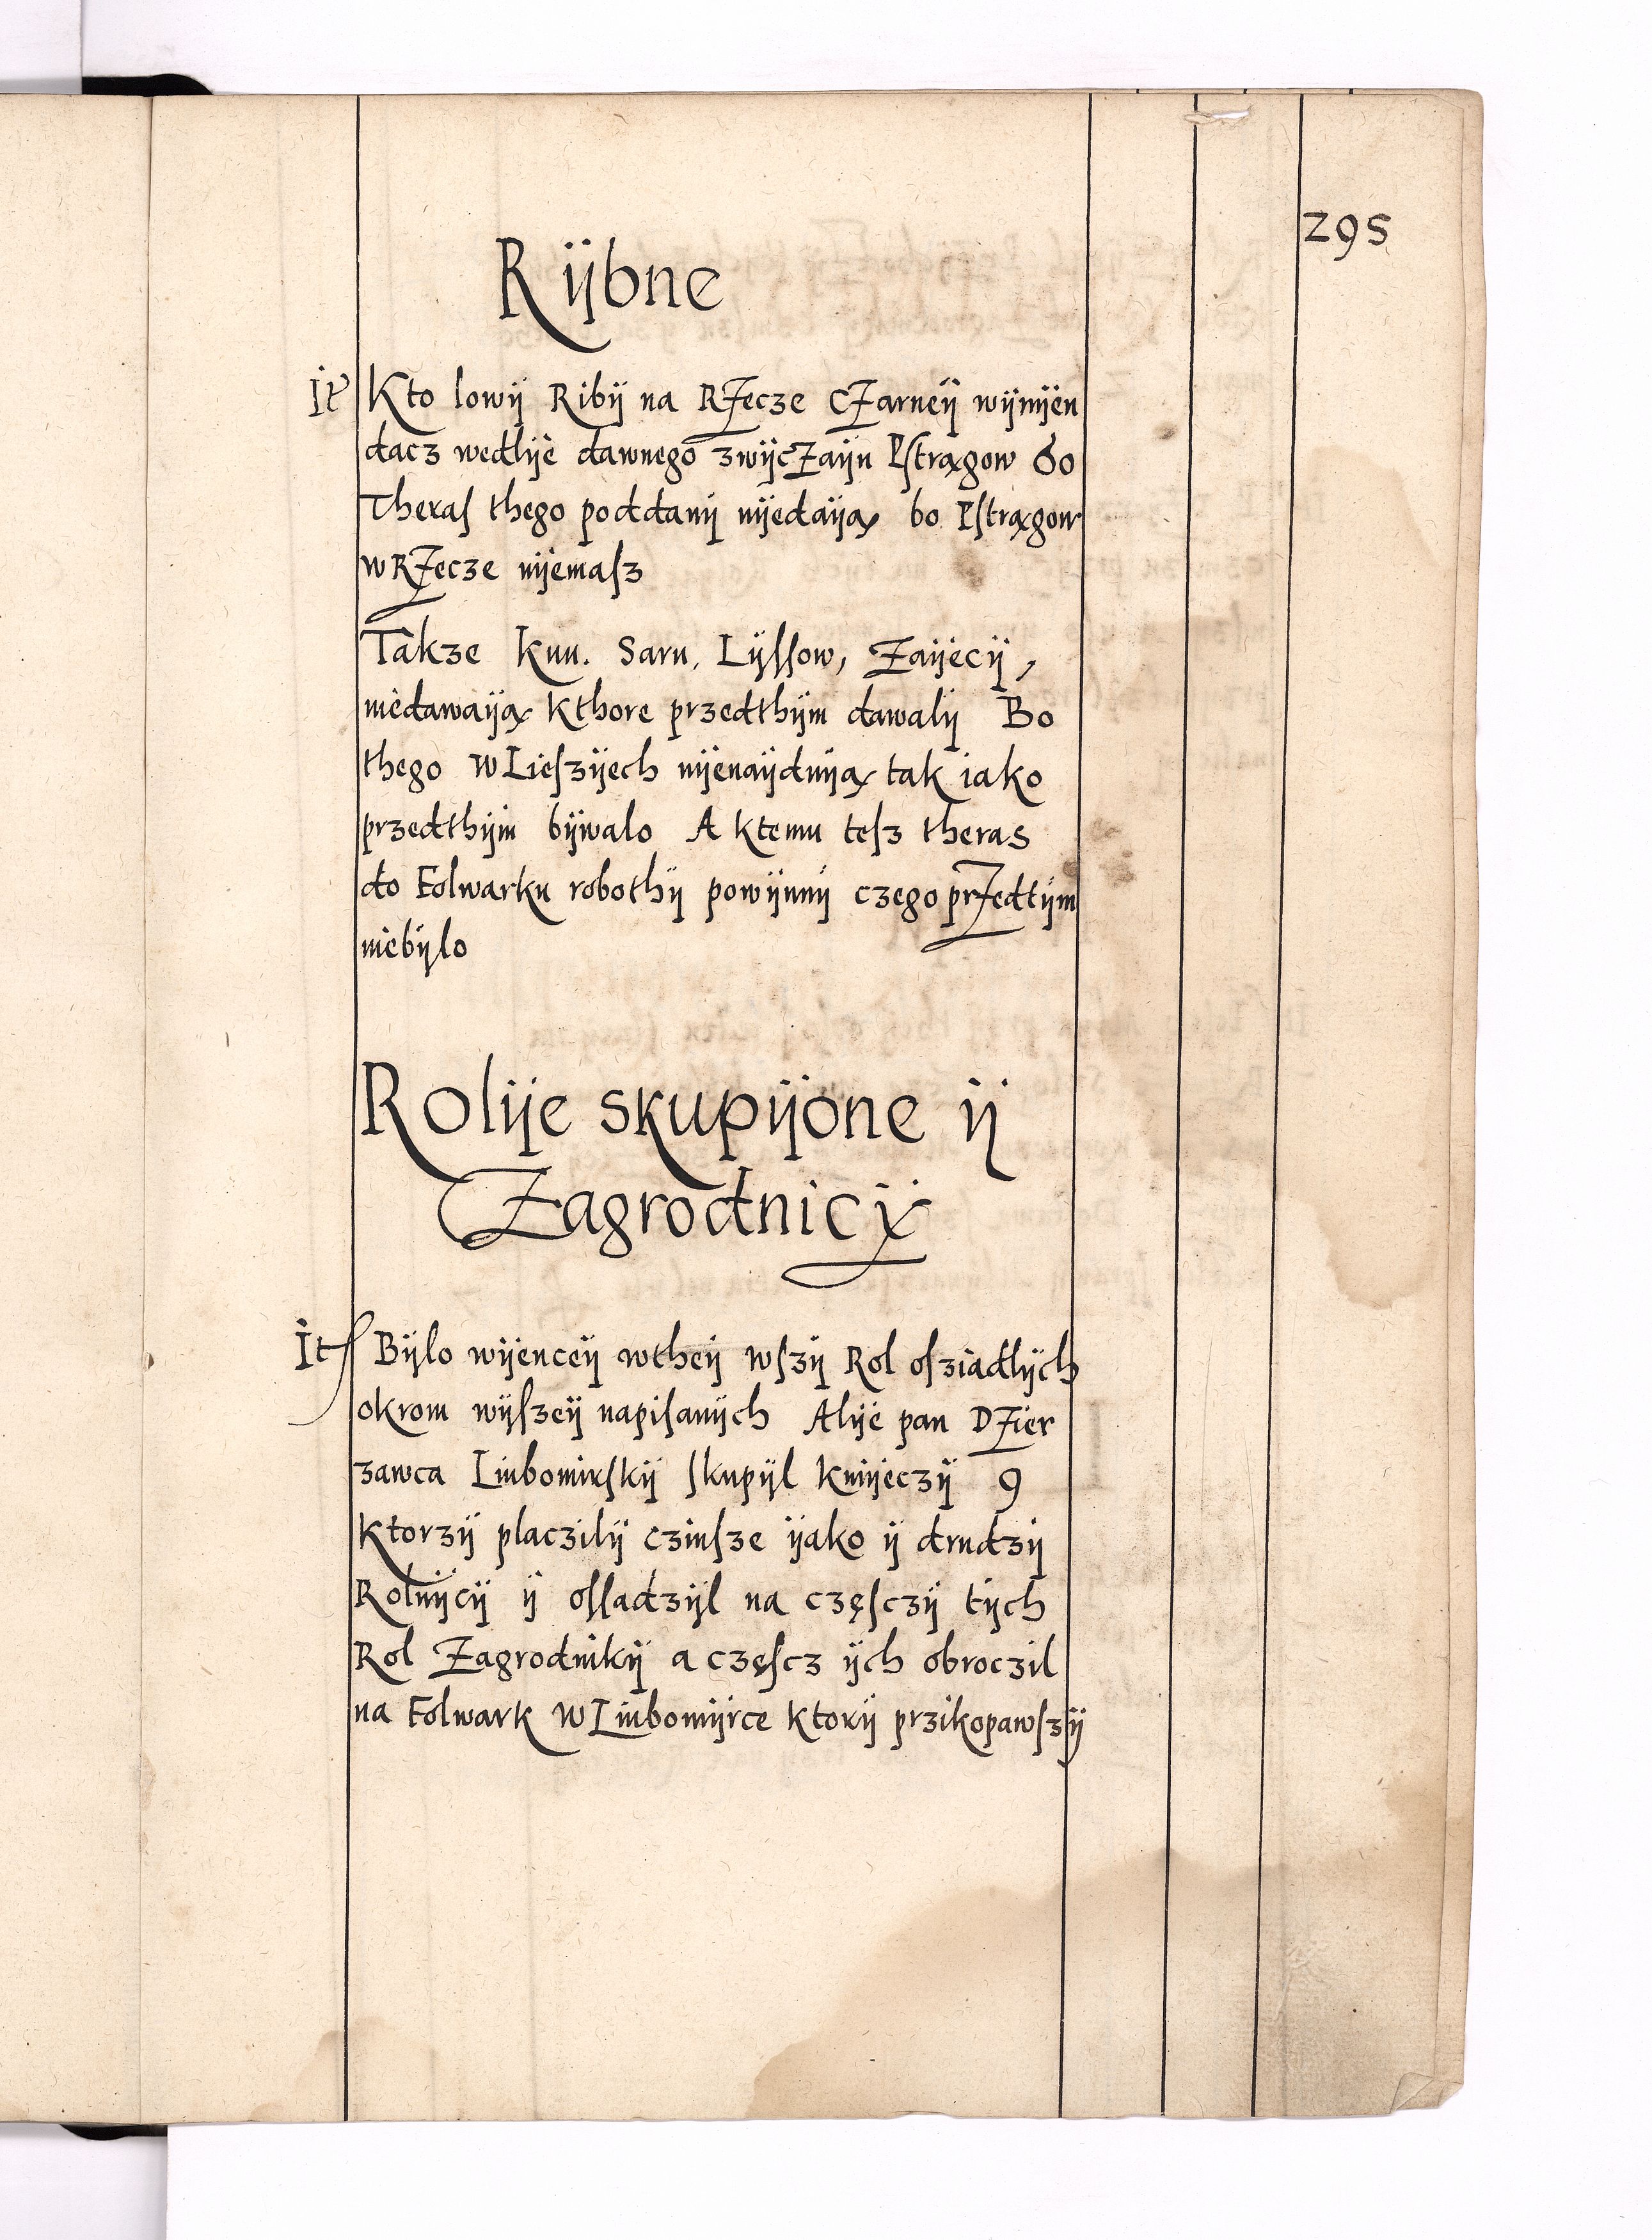 295
Rÿbne
It Kto lowÿ Ribÿ na RZecze CZarneÿ wÿnÿen
dacz wedlÿe dawnego zwÿcZaÿu Pstrągow 60
Theras thego poddanÿ nÿedaÿą bo Pstrągow
w RZecze nÿemasz
Takze Kun. Sarn, Lÿssow, Zaÿecÿ,
niedawaÿą Kthore przedthÿm dawalÿ Bo
thego w Lieszÿech nÿenaÿduÿą tak iako
przedthÿm bÿwalo A Ktemu tesz theras
do Folwarku robothÿ powÿnnÿ czego prZedtÿm
niebÿlo
Rolÿe skupÿone ÿ
Zagrodnicÿ
It Bÿlo wÿenceÿ wtheÿ wszÿ Rol osziadlÿch
okrom wÿszeÿ napisanÿch Alÿe pan DZier
zawca Liubomirskÿ skupÿl Kmÿeczÿ 9
Ktorzÿ placzilÿ czinsze ÿako ÿ drudzÿ
Rolnÿcÿ ÿ ossadzÿl na częsczÿ tÿch
Rol Zagrodnikÿ a częscz ÿch obroczil
na Folwark w Liubomÿrce Ktorÿ przikopawszÿ